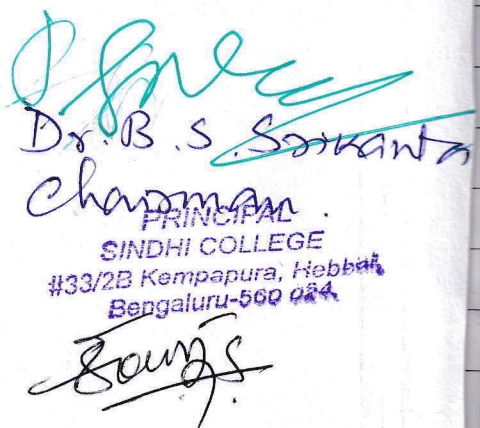 Dr. B. S. Srikanta
Chairman.
PRINCIPAL
SINDHI COLLEGE
#33/2B Kempapura, Hebbal,
Bengaluru-560 024.